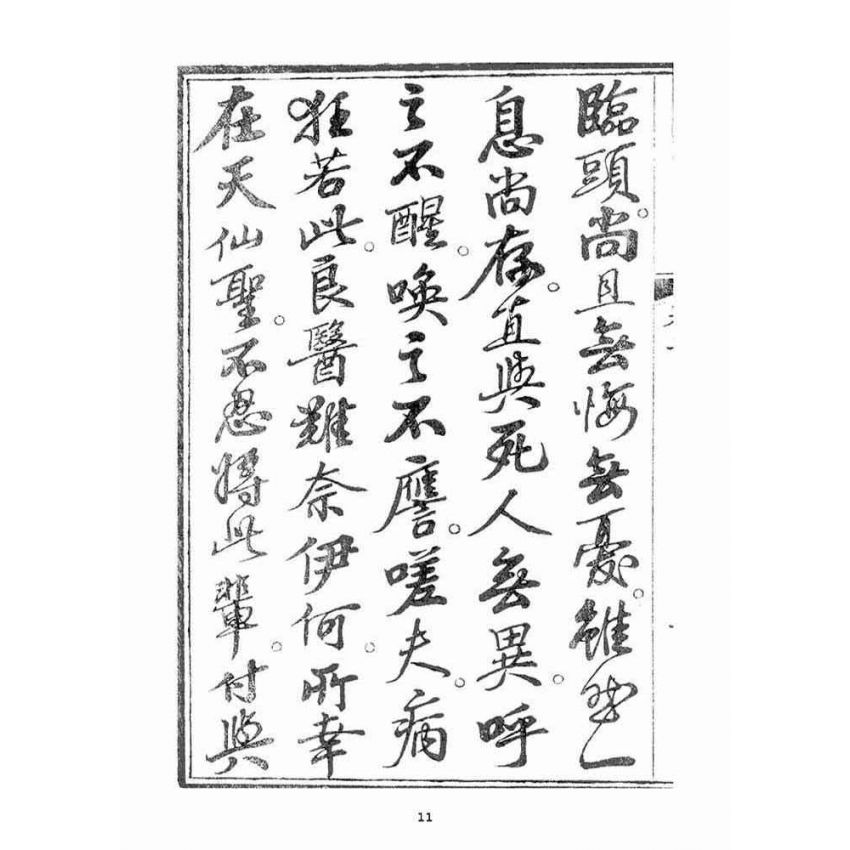 臨頭。尚且無悔無憂。雖然一
息尚存。直與死人無異。呼
之不醒。喚之不譍。嗟夫。病
狂若此。良醫難奈伊何。所幸
在天仙聖。不忍將此輩。付與
11